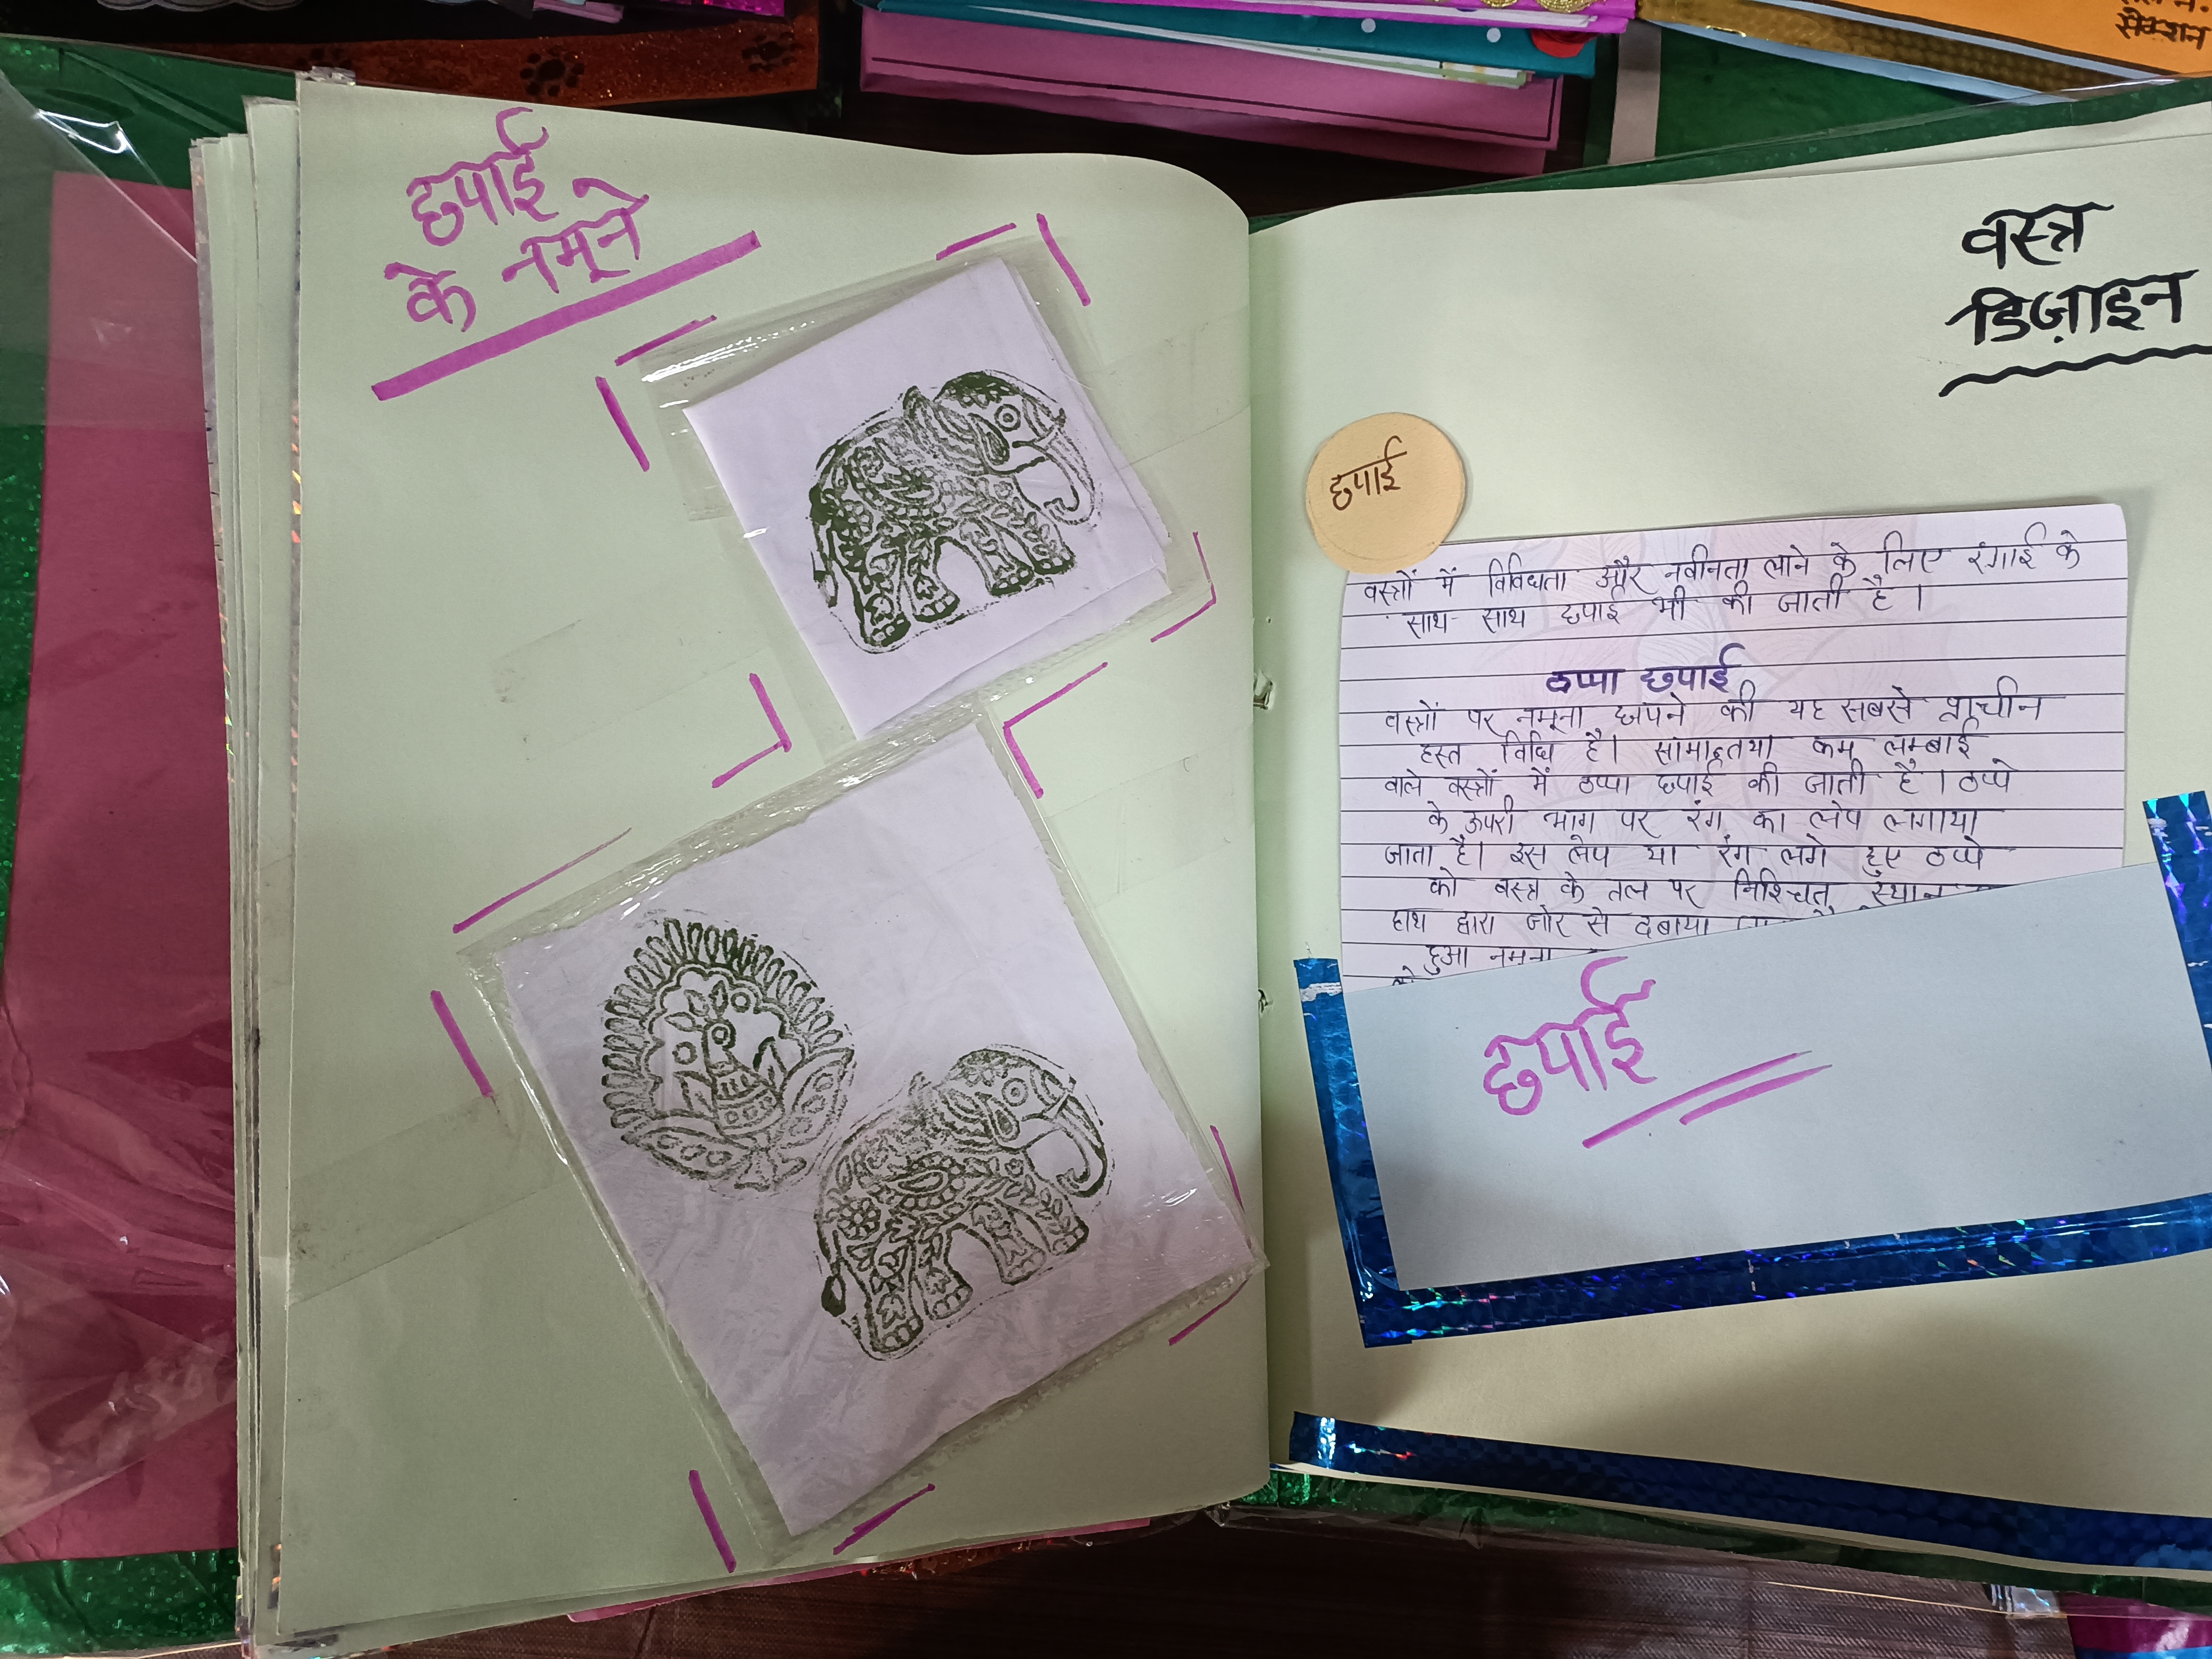 छपाई
के नमूने
वस्त्र
डिज़ाइन
छपाई
वस्त्रों में विविधता और नवीनता लाने के लिए रंगाई के
साथ-साथ छपाई भी की जाती है।
ठप्पा छपाई
वस्त्रों पर नमूना छापने की यह सबसे प्राचीन
हस्त विधि है। कम लम्बाई
वाले वस्त्रों में ठप्पा छपाई की जाती है। ठप्पे
के ऊपरी भाग पर रंग का लेप लगाया
जाता है। इस लेप या रंग लगे हुए ठप्पे
को वस्त्र के तल पर निश्चित स्थान
हाथ द्वारा जोर से दबाया
हुआ नमूना
छपाई
सेक्शन